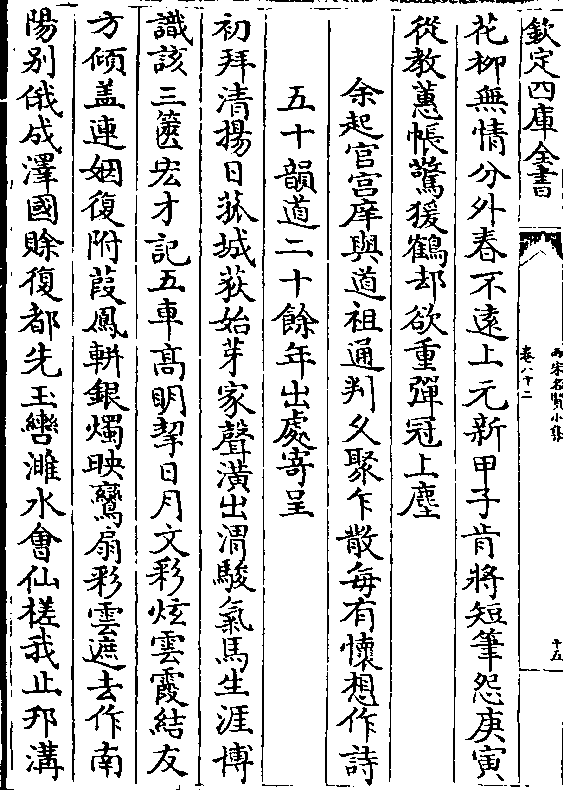 欽定四庫全書
兩宋名賢小集
卷八十二
十五
花柳無情分外春不遠上元新甲子肯將短筆怨庚寅
從教蕙帳驚猨鶴却欲重彈冠上塵
余起官宫庠與道祖通判乆聚乍散每有懷想作詩
五十韻道二十餘年出處寄呈
初拜清揚日菰城荻始芽家聲潢出渭駿氣馬生涯博
識該三篋宏才記五車髙明挈日月文彩炫雲霞結友
方傾盖連姻復附葭鳳輧銀燭映鸞扇彩雲遮去作南
陽别俄成澤國賖復都先玉轡濉水會仙槎我止邗溝